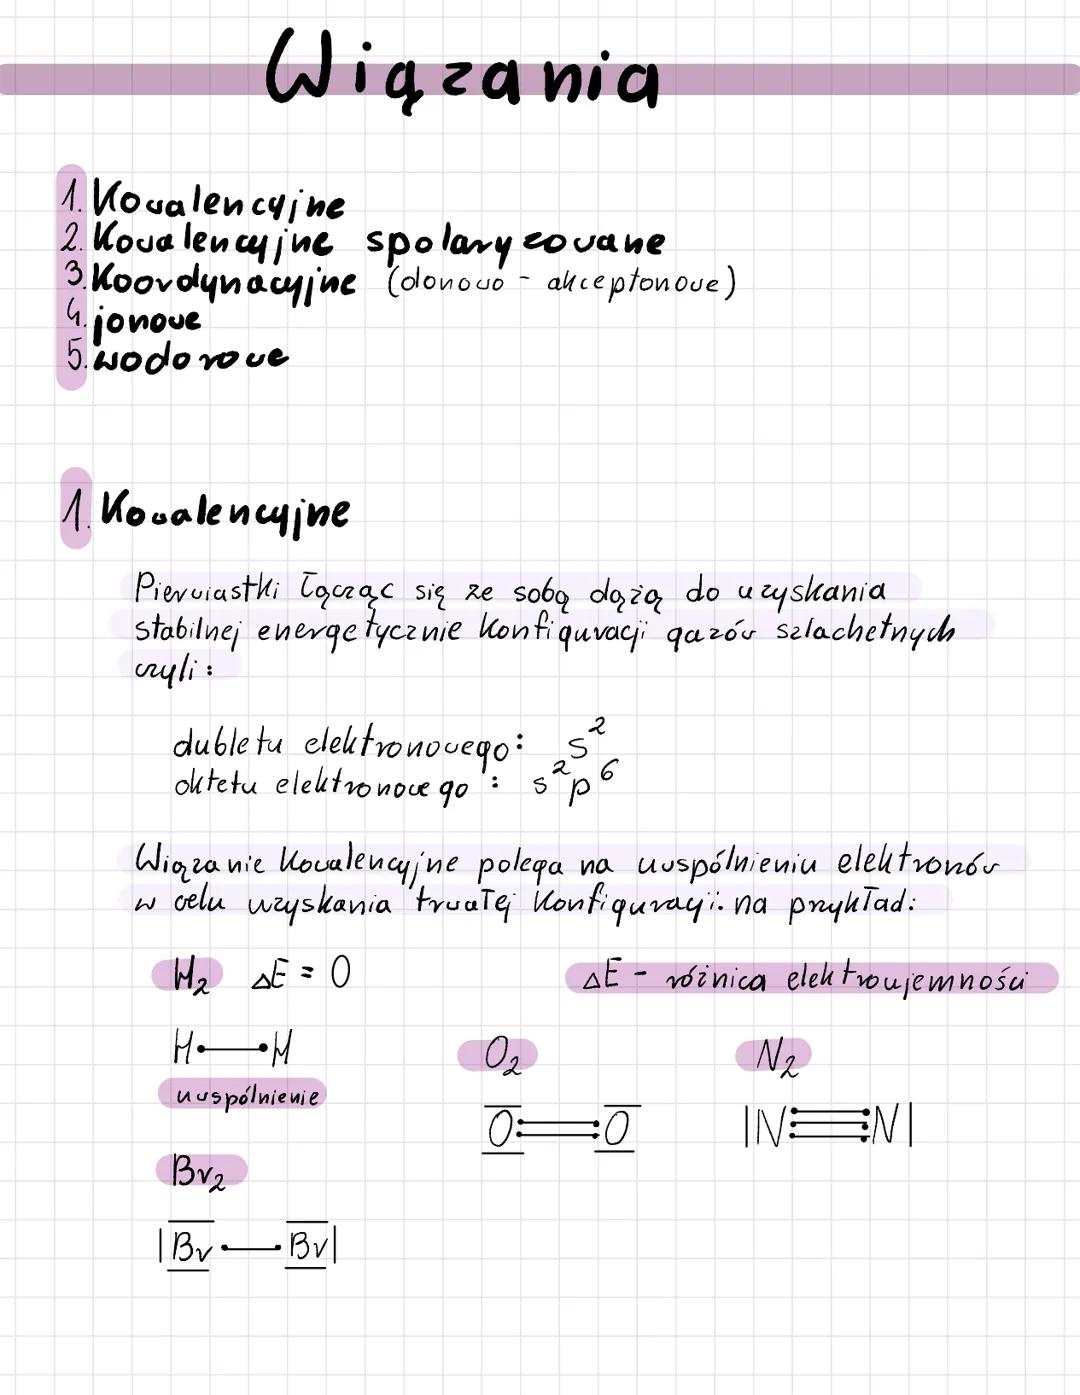 Wiązania
1. Kowalencyjne
2. Kowalencyjne spolaryzowane
3. Koordynacyjne (donowo - akceptorowe)
4. jonowe
5. wodorowe
1. Kowalencyjne
Pierwiastki łącząc się ze sobą dążą do uzyskania
stabilnej energetycznie konfiguracji gazów szlachetnych
czyli:
dubletu elektronowego: s²
oktetu elektronowego: s²p⁶
Wiązanie kowalencyjne polega na uwspólnieniu elektronów
w celu uzyskania trwałej konfiguracji. na przykład:
H₂ ΔE = 0 ΔE - różnica elektroujemności
H—H O₂ N₂
uwspólnienie
O=O |N≡N|
Br₂
|Br—Br|